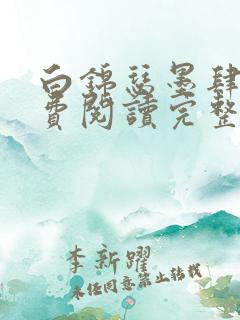 白锦瑟墨肆
费阅读完整
李新躍
未经同意禁止转载